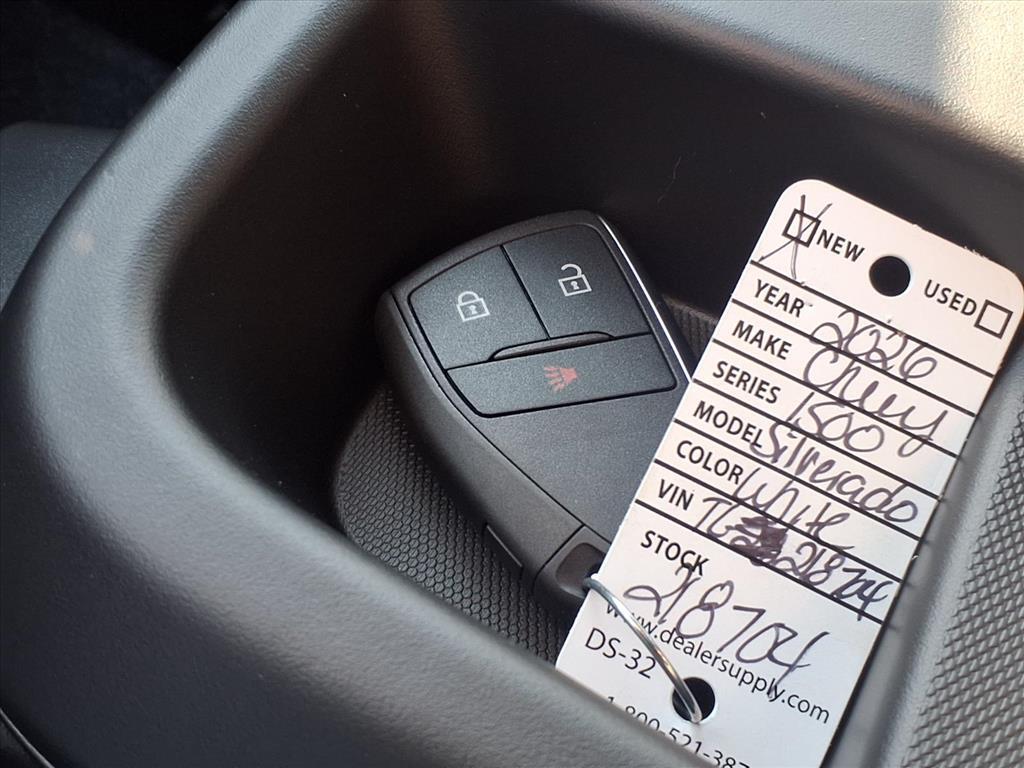 NEW USED
YEAR 2026
MAKE Chevy
SERIES 1500
MODEL Silverado
COLOR White
VIN 218704
STOCK
218704
www.dealersupply.com
DS-32
1-800-521-387